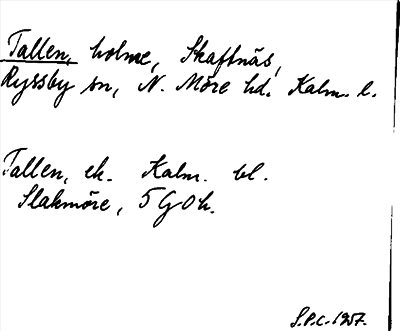 Tallen, holme, Skaftnäs,
Ryssby sn, N. Möre hd. Kalm. l.
Tallen, ek. Kalm. bl.
Slakmöre, 5 G O h.
S.P.C. 1957.